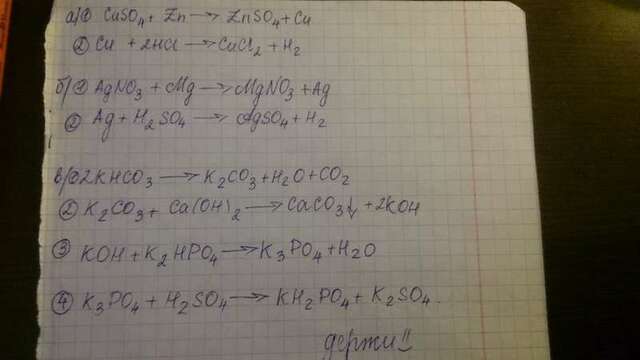 а) ① CuSO₄ + Zn → ZnSO₄ + Cu
② Cu + 2HCl → CuCl₂ + H₂
б) ① AgNO₃ + Mg → MgNO₃ + Ag
② Ag + H₂SO₄ → AgSO₄ + H₂
в) ① 2KHCO₃ → K₂CO₃ + H₂O + CO₂
② K₂CO₃ + Ca(OH)₂ → CaCO₃↓ + 2KOH
③ KOH + K₂HPO₄ → K₃PO₄ + H₂O
④ K₃PO₄ + H₂SO₄ → KH₂PO₄ + K₂SO₄.
держи!!